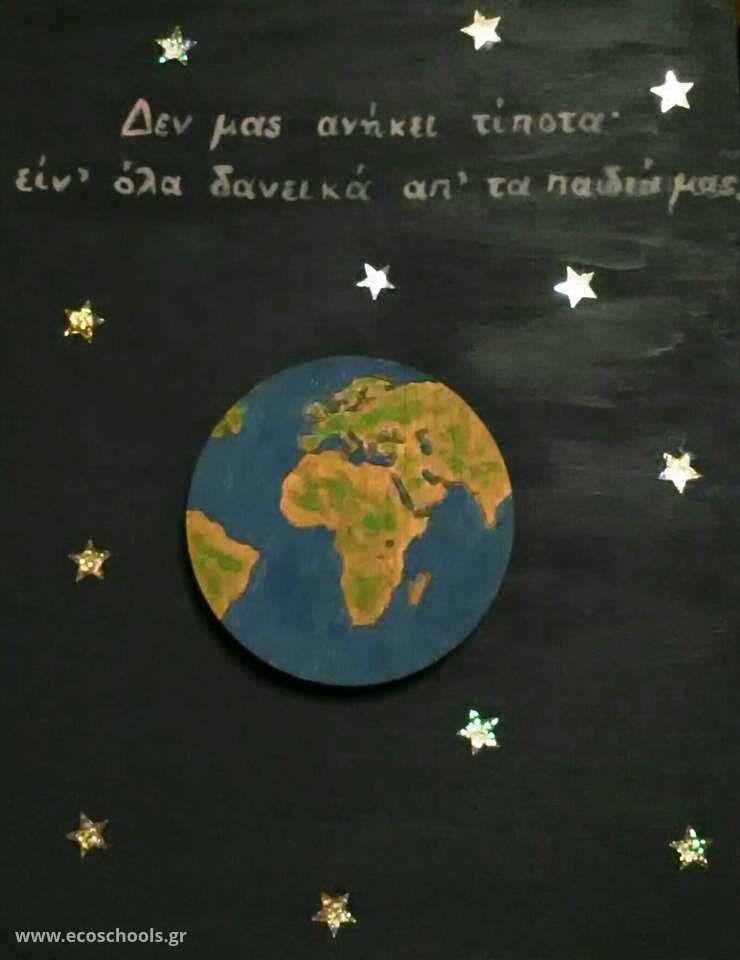 Δεν μας ανήκει τίποτα·
είν' όλα δανεικά απ' τα παιδιά μας.
www.ecoschools.gr